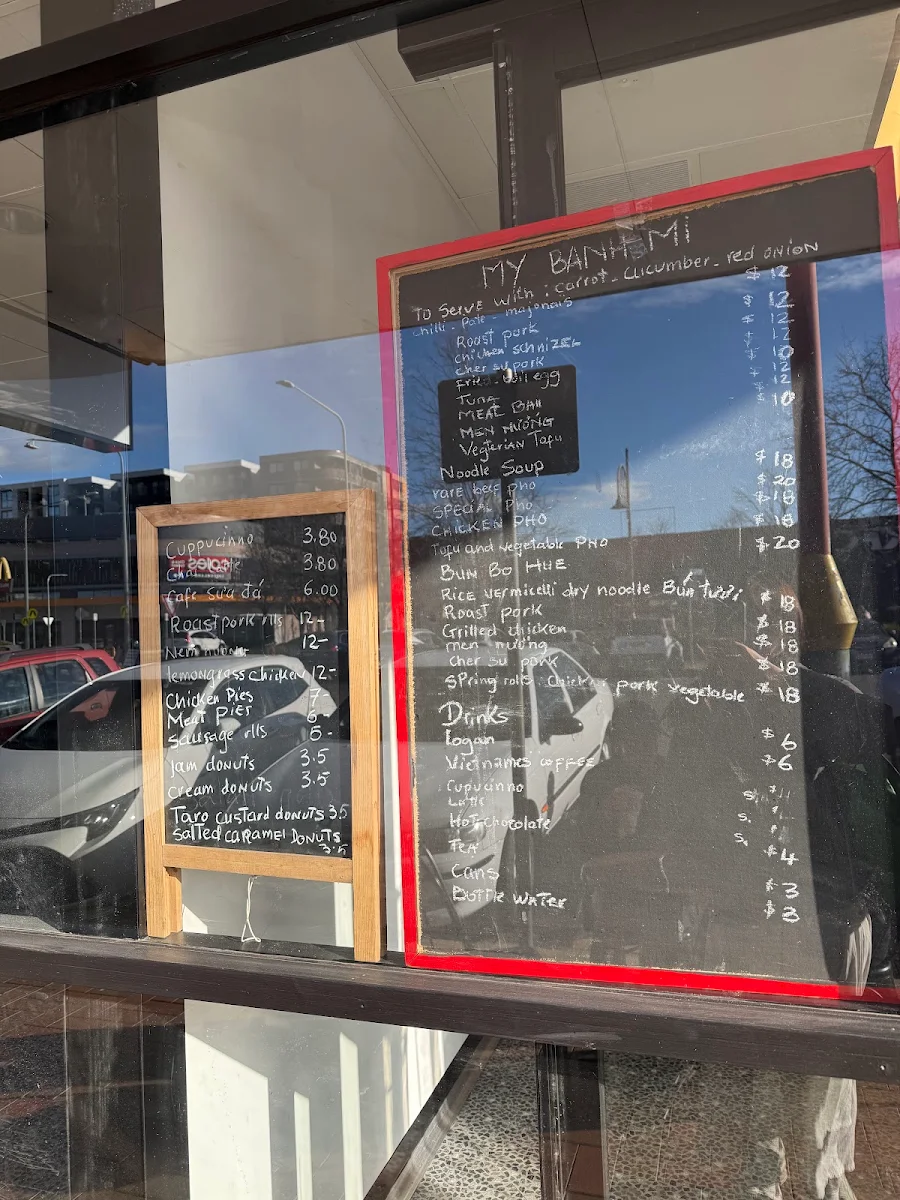 Cuppucinno 3.80
3.80
Cafe sửa đá 6.00
Roast pork rlls 12-
12-
lemongrass chicken 12-
Chicken Pies 7-
Meat Pies 6-
Sausage rlls 5-
Jam donuts 3.5
Cream donuts 3.5
Taro custard donuts 3.5
Salted caramel Donuts
3.5
MY BANH Mi
To Serve with : carrot - cucumber - red onion
chilli - pate - majonais $ 12
Roast pork $ 12
chicken schnizel $ 12
cher su pork $ 10
Fried egg $ 12
Tuna $ 12
MEAT Ball $ 10
MEN NƯỚNG
Vegterian Tofu
Noodle Soup
rare beef pho $ 18
SPECIAL Pho $ 20
CHICKEN PHO $ 18
Tofu and vegetable PHO $ 18
BUN BO HUE $ 20
Rice vermicelli dry noodle Bún tươi
Roast pork $ 18
Grilled chicken $ 18
men nướng $ 18
cher su pork $ 18
SPring rolls chicken pork vegetable $ 18
Drinks
logan $ 6
Vietnames COFFEE $ 6
Cupucinno
Latte
Hot chocolate
TEA $ 4
Cans $ 3
Bottle Water $ 3
coles